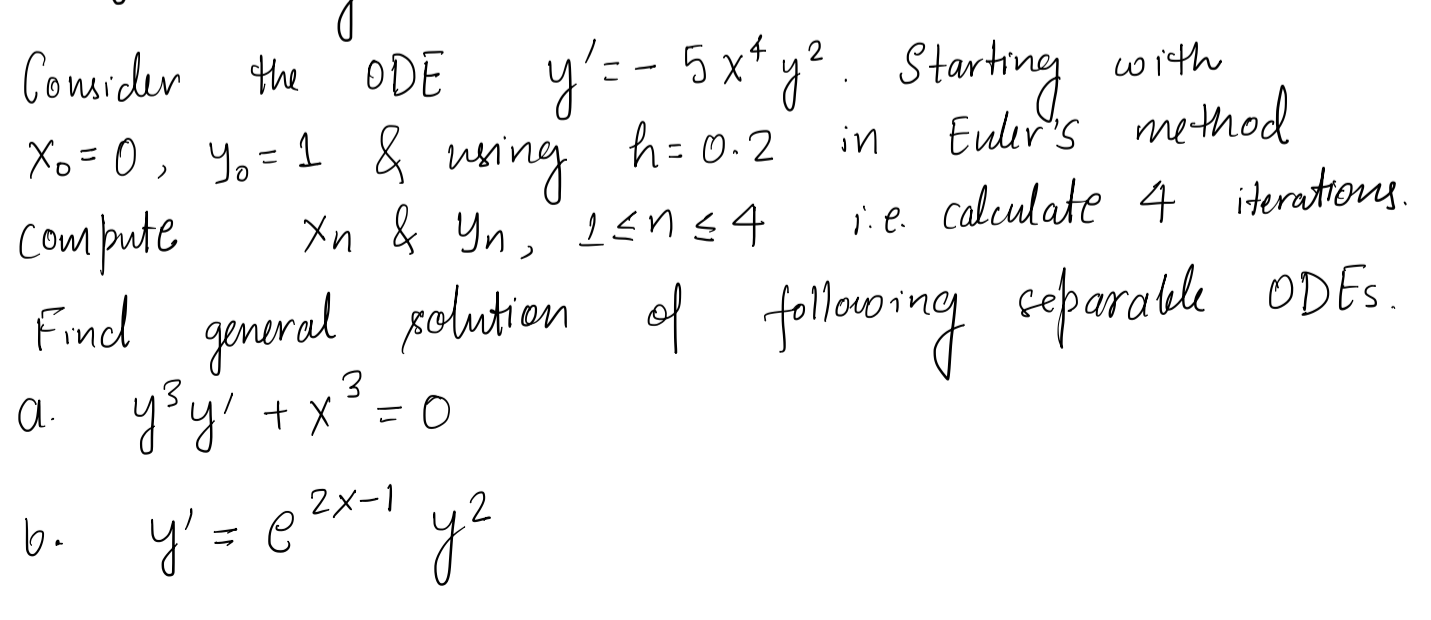 Consider the ODE y' = - 5x⁴y². Starting with
x₀ = 0, y₀ = 1 & using h = 0.2 in Euler's method
compute xₙ & yₙ, 1 ≤ n ≤ 4 i.e. calculate 4 iterations.
Find general solution of following separable ODEs.
a. y³y' + x³ = 0
b. y' = e²ˣ⁻¹ y²